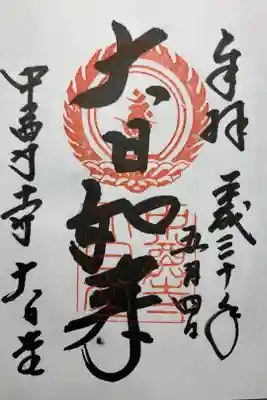 奉拝 平成三十年
五月四日
大日如来
中尊寺 大日堂